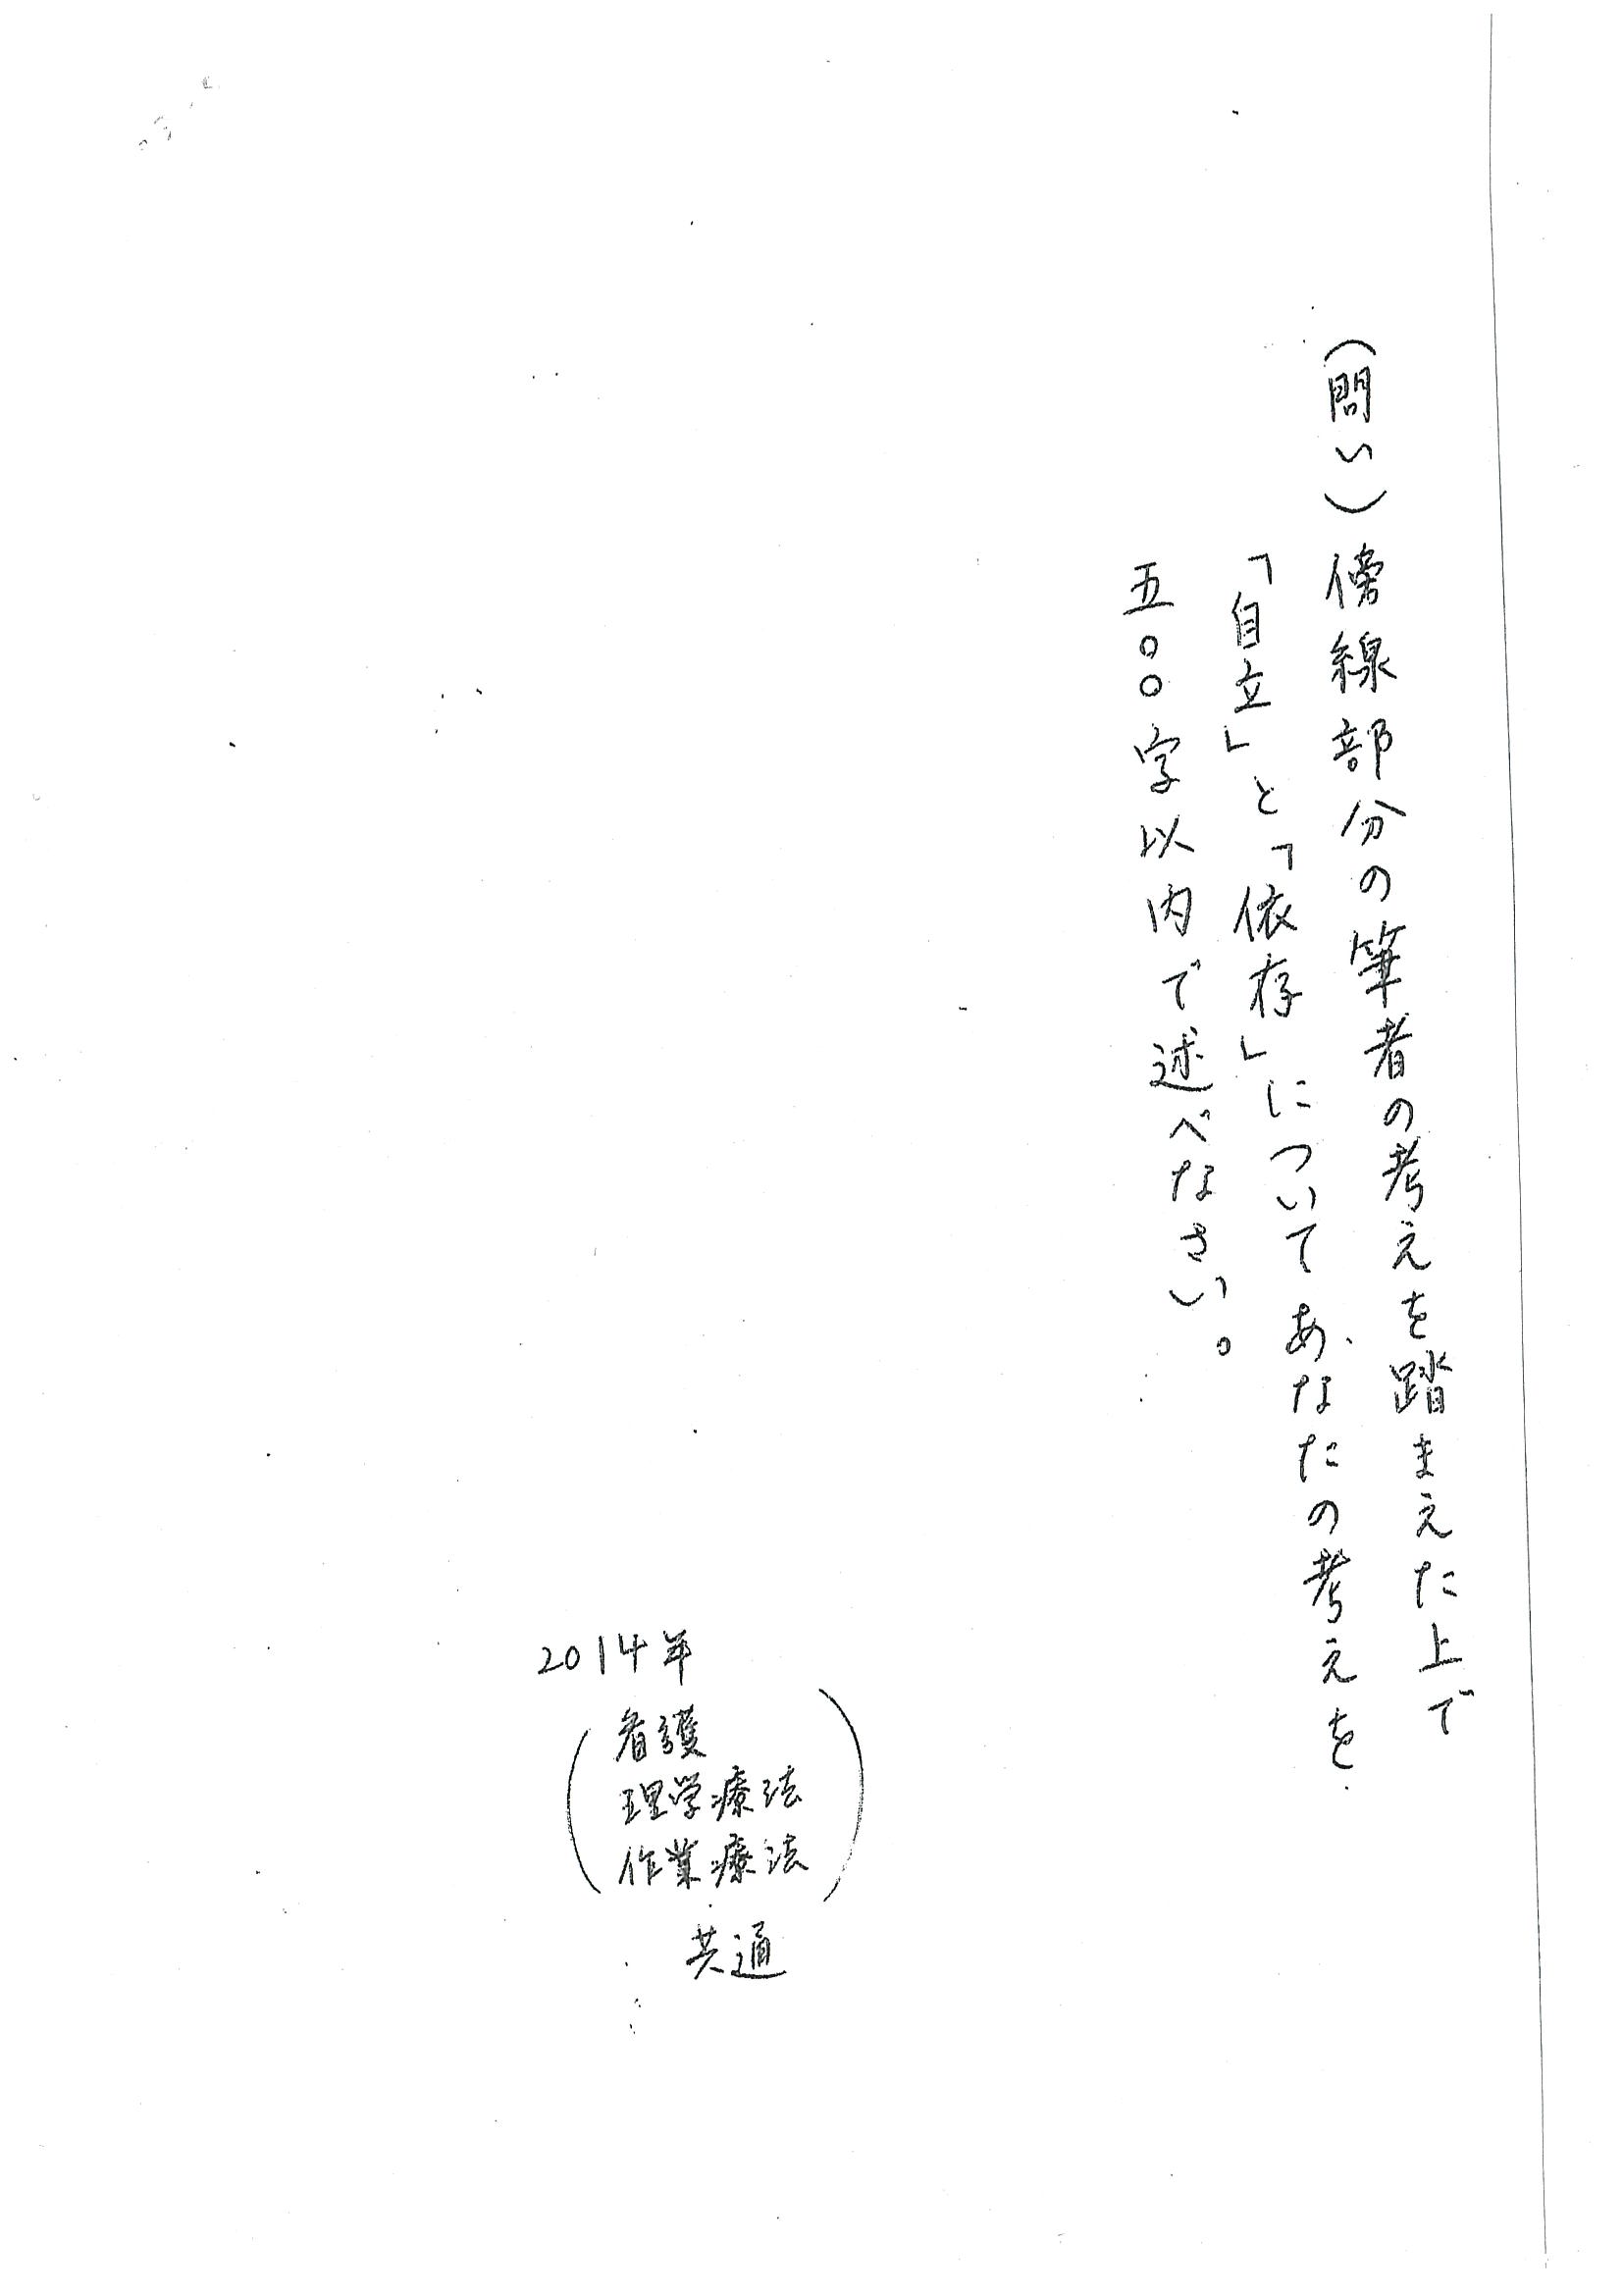 (問い)傍線部分の筆者の考えを踏まえた上で
「自立」と「依存」についてあなたの考えを
五〇〇字以内で述べなさい。
2014年
(看護
理学療法
作業療法)
共通